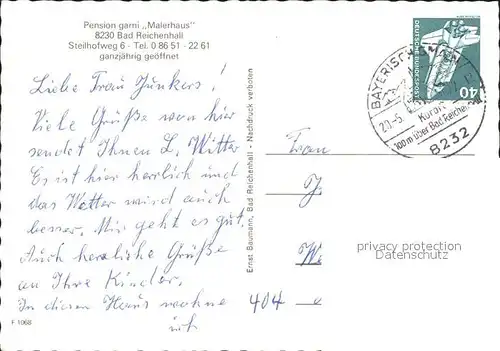 Pension garni „Malerhaus"
8230 Bad Reichenhall
Steilhofweg 6 - Tel. 0 86 51 - 22 61
ganzjährig geöffnet
Liebe Frau Junkers!
Viele Grüße von hier
sendet Ihnen L. Witter
Es ist hier herrlich und
das Wetter wird auch
besser. Mir geht es gut.
Auch herzliche Grüße
an Ihre Kinder.
In diesem Haus wohne
ich
F 1068
Ernst Baumann, Bad Reichenhall - Nachdruck verboten
DEUTSCHE BUNDESPOST
40
BAYERISCH GMAIN
20.-6.
Kurort
100 m über Bad Reichenhall
8232
Frau
404
privacy protection
Datenschutz